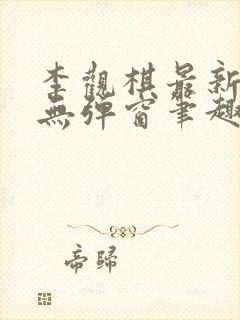 李觀棋最新
無彈窗筆趣
帝歸